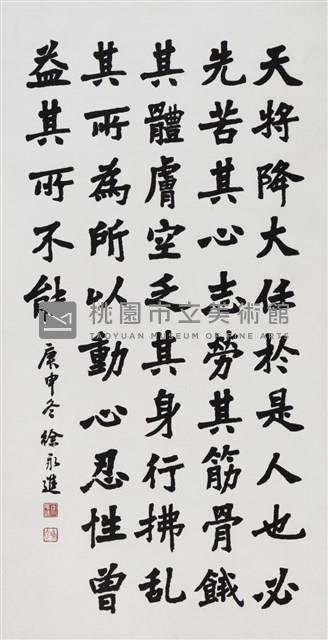 天將降大任於是人也必
先苦其心志勞其筋骨餓
其體膚空乏其身行拂乱
其所為所以動心忍性曾
益其所不能
庚申冬徐永進
桃園市立美術館
TAOYUAN MUSEUM OF FINE ARTS